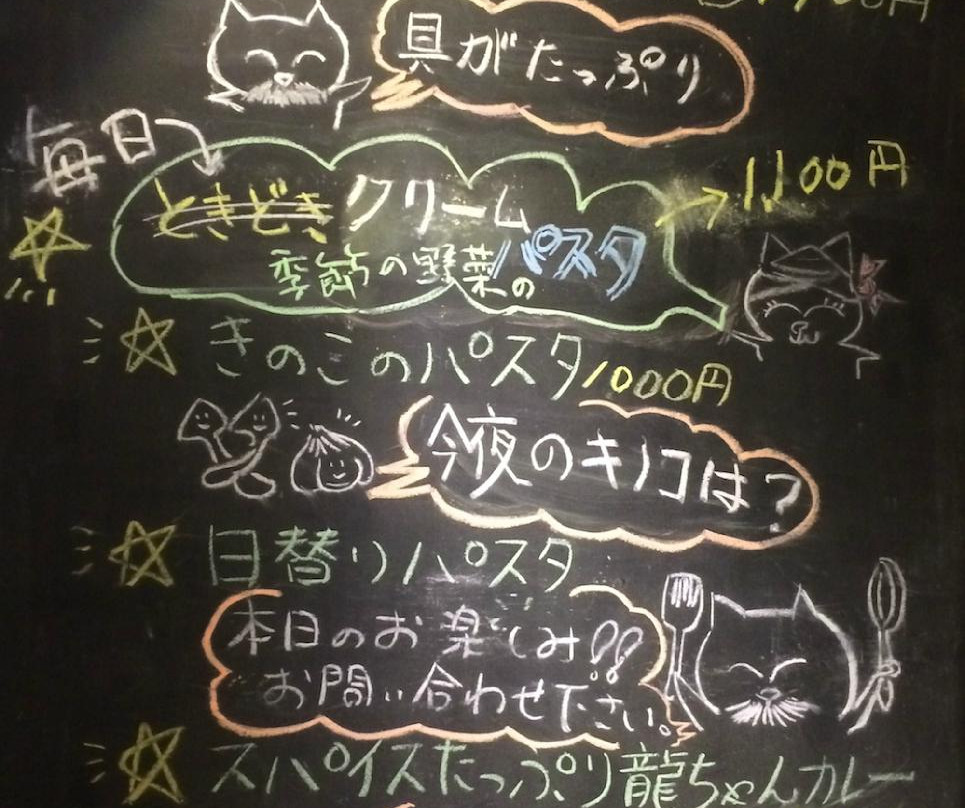 具がたっぷり
毎日
ときどき クリーム
1,100円
季節の野菜のパスタ
きのこのパスタ 1000円
今夜のキノコは？
日替りパスタ
本日のお楽しみ!!
お問い合わせ下さい。
スパイスたっぷり龍ちゃんカレー